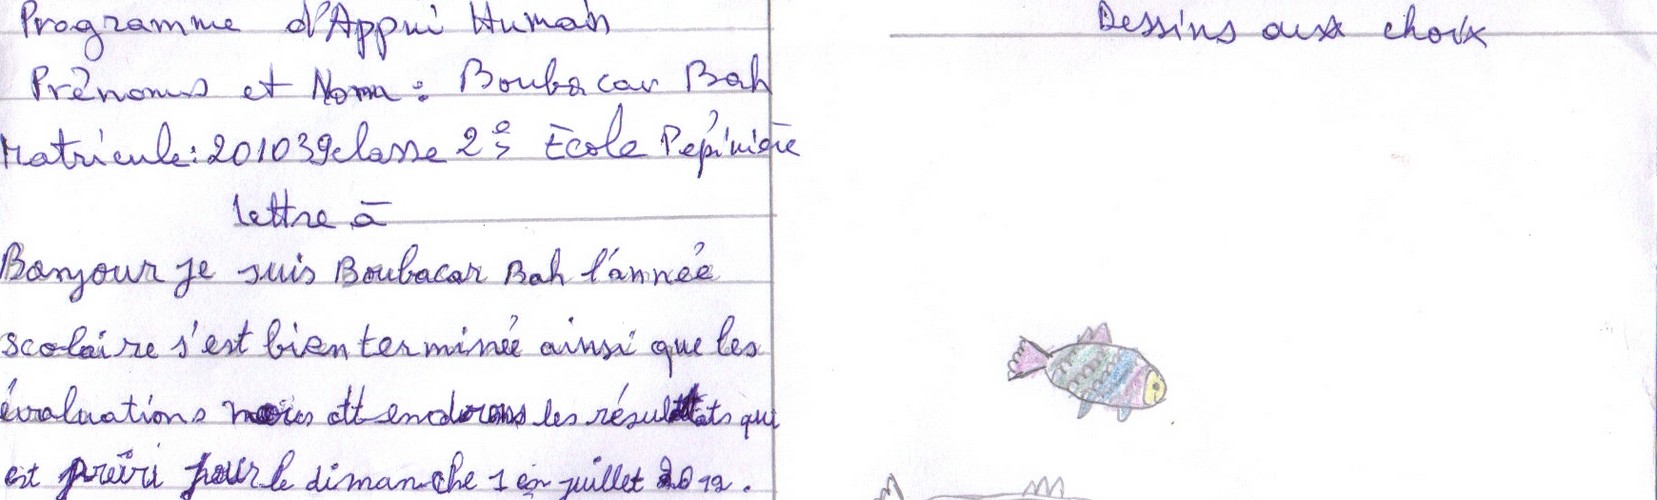 Programme d'Appui Humah
Prénoms et Nom : Boubacar Bah
Matricule: 201039 classe 2e Ecole Pépinière
lettre à
Bonjour je suis Boubacar Bah l'année
scolaire s'est bien terminée ainsi que les
évaluations nous attendons les résultats qui
est prévri pour le dimanche 1er juillet 2012.
Dessins aux choix